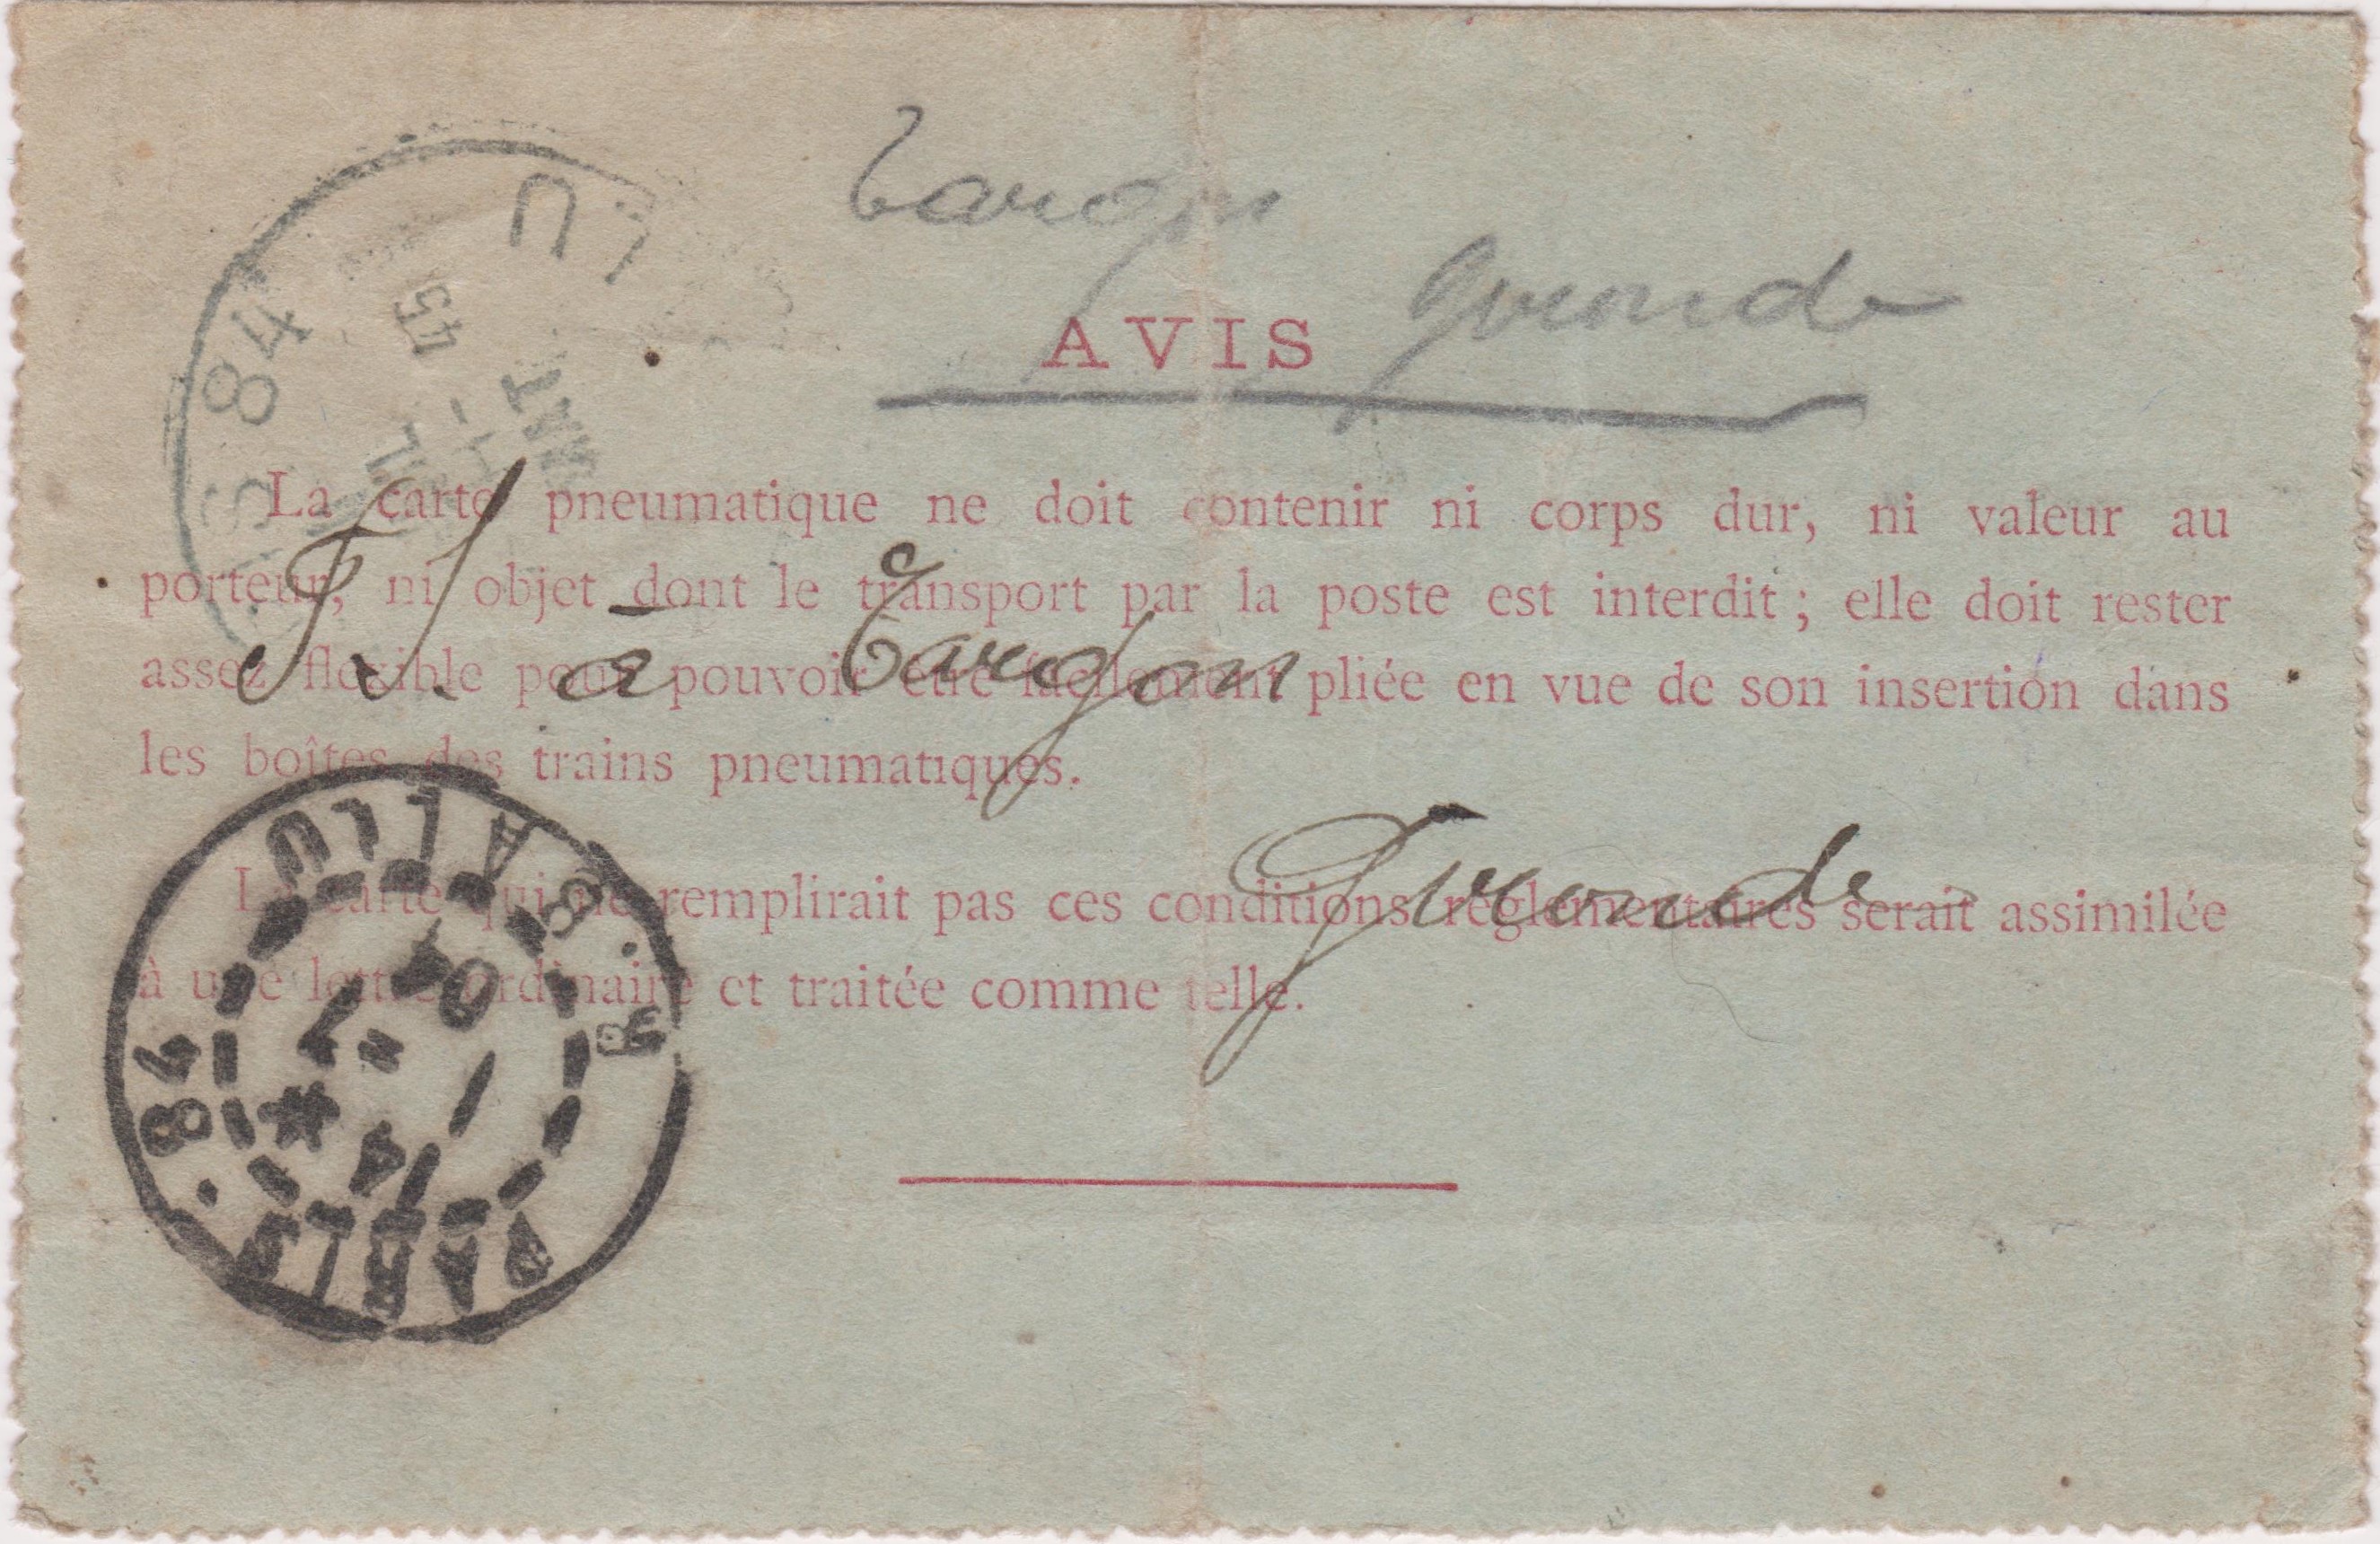 Targon
Gironde
AVIS
La carte pneumatique ne doit contenir ni corps dur, ni valeur au
porteur, ni objet dont le transport par la poste est interdit ; elle doit rester
assez flexible pour pouvoir être facilement pliée en vue de son insertion dans
les boîtes des trains pneumatiques.
à Targon
Gironde
La carte qui ne remplirait pas ces conditions réglementaires serait assimilée
à une lettre ordinaire et traitée comme telle.
84
45
PARIS · 84
R. BALLU